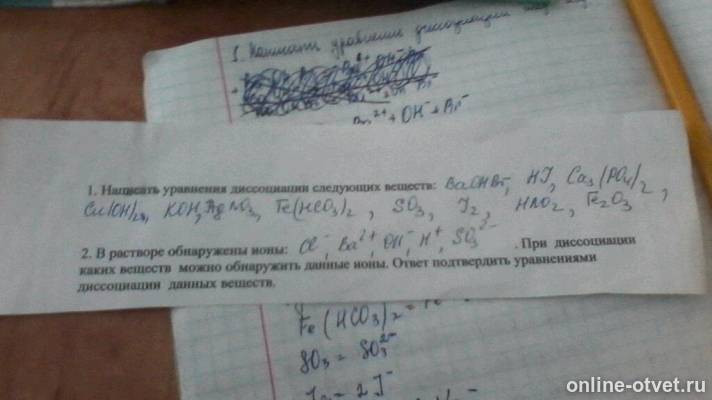 1. Написать уравнения диссоциации
Ba²⁺ + OH⁻ + Br⁻
1. Написать уравнения диссоциации следующих веществ: BaOHBr, HJ, Ca₃(PO₄)₂,
KOH, AgNO₃, Fe(HCO₃)₂, SO₃, J₂, HNO₂, Fe₂O₃
2. В растворе обнаружены ионы: Cl⁻, Ba²⁺, OH⁻, H⁺, SO₃²⁻ . При диссоциации
каких веществ можно обнаружить данные ионы. Ответ подтвердить уравнениями
диссоциации данных веществ.
Fe(HCO₃)₂ =
SO₃ = SO₃²⁻
J₂ = 2J⁻
online-otvet.ru